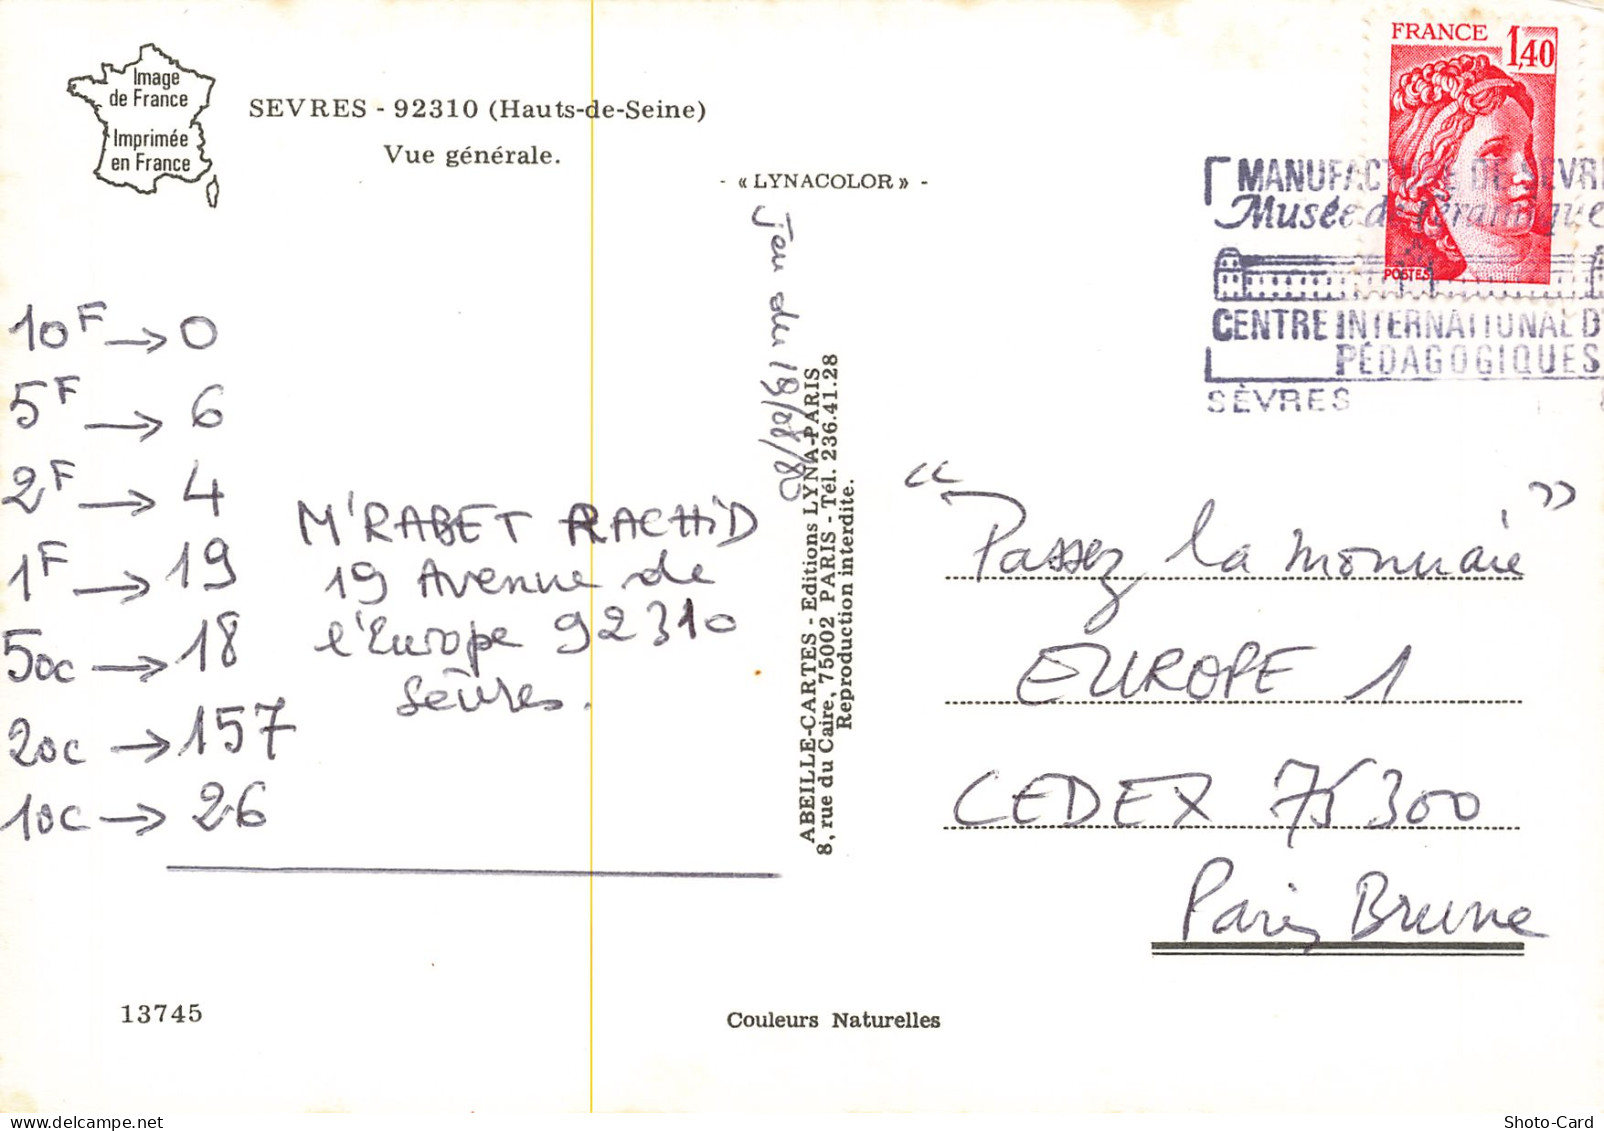 Image
de France
Imprimée
en France
SEVRES - 92310 (Hauts-de-Seine)
Vue générale.
- « LYNACOLOR » -
Jeu du 19/08/80
10F → 0
5F → 6
2F → 4
1F → 19
50c → 18
20c → 157
10c → 26
M'RABET RACHID
19 Avenue de
l'Europe 92310
Sèvres.
ABEILLE-CARTES - Editions LYNA-PARIS
8, rue du Caire, 75002 PARIS - Tél. 236.41.28
Reproduction interdite.
FRANCE 1,40
POSTES
MANUFACTURE DE SEVRE
Musée de Céramique
CENTRE INTERNATIONAL D'
PÉDAGOGIQUES
SÈVRES
“Passez la monnaie”
EUROPE 1
CEDEX 75300
Paris Brune
13745
Couleurs Naturelles
Shoto-Card